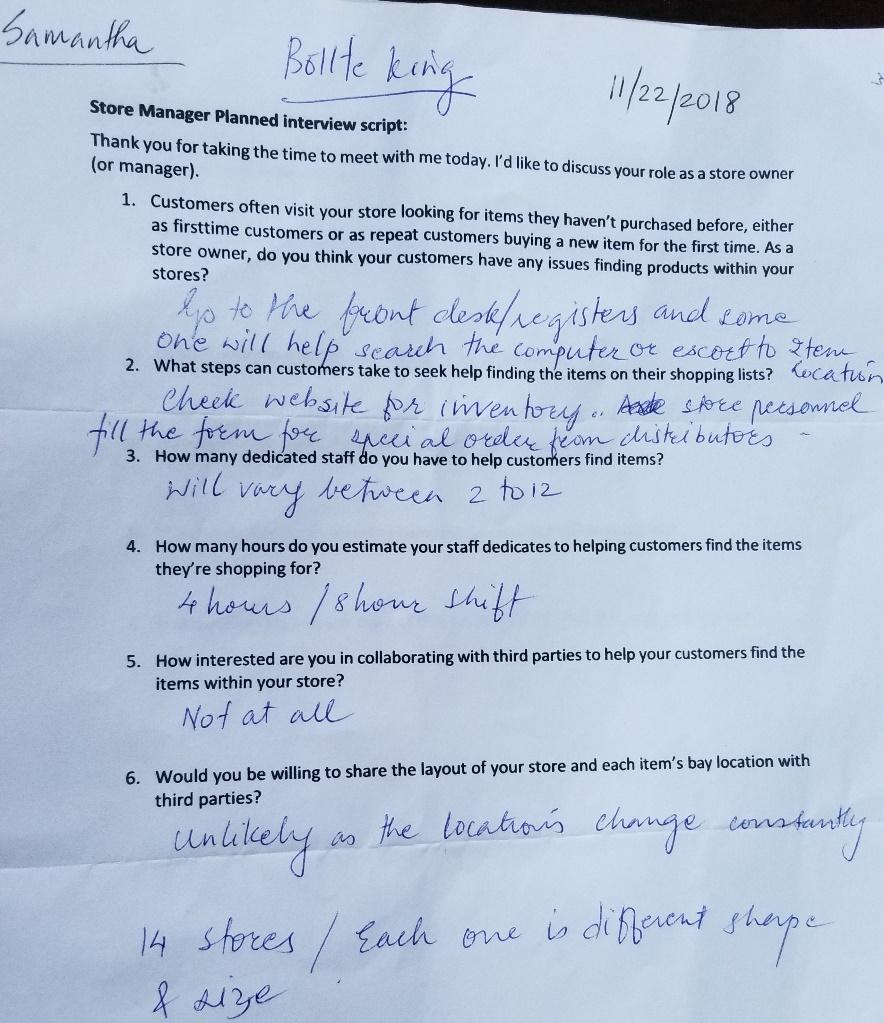 Samantha
Bollte king
11/22/2018
Store Manager Planned interview script:
Thank you for taking the time to meet with me today. I'd like to discuss your role as a store owner
(or manager).
1. Customers often visit your store looking for items they haven't purchased before, either
as firsttime customers or as repeat customers buying a new item for the first time. As a
store owner, do you think your customers have any issues finding products within your
stores?
to the front desk/registers and some
one will help search the computer or escort to Item
location
2. What steps can customers take to seek help finding the items on their shopping lists?
Check website for inventory.. store personnel
fill the form for special order from distributors -
3. How many dedicated staff do you have to help customers find items?
Will vary between 2 to 12
4. How many hours do you estimate your staff dedicates to helping customers find the items
they're shopping for?
4 hours / 8 hour shift
5. How interested are you in collaborating with third parties to help your customers find the
items within your store?
Not at all
6. Would you be willing to share the layout of your store and each item's bay location with
third parties?
Unlikely as the locations change constantly
14 stores / Each one is different shape
& size